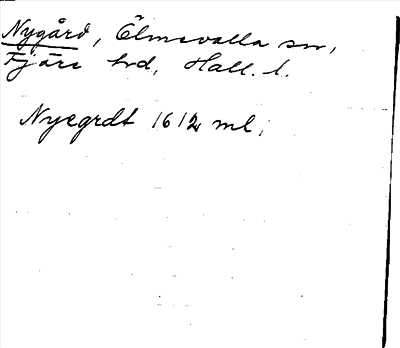 Nygård, Ölmevalla sn,
Fjäre hrd, Hall. l.
Nyegrdt 1612 ml;